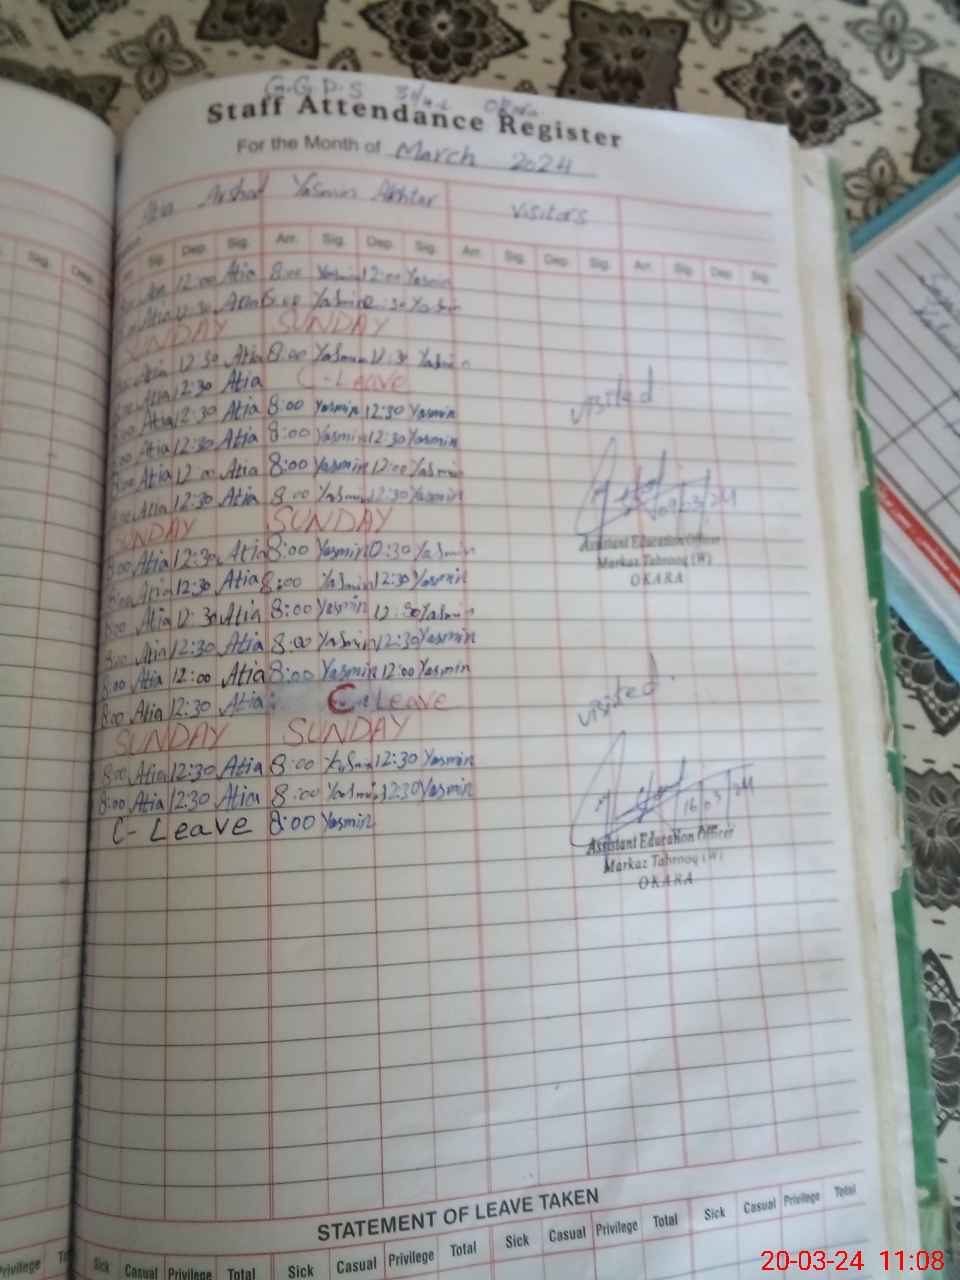 G.G.P.S
Staff Attendance Register
For the Month of March 2024
Atia Arshad Yasmin Akhtar Visitors
Sig. Dep. Sig. Dep. Sig. Arr. Sig. Dep. Sig. Arr. Sig. Dep. Sig. Arr. Sig. Dep. Sig.
12:00 Atia 8:00 Yasmin 12:00 Yasmin
Atia 12:30
SUNDAY SUNDAY
Atia 12:30 Atia 8:00 Yasmin 12:30 Yasmin
8:00 Atia 12:30 Atia C-LEAVE
8:00 Atia 12:30 Atia 8:00 Yasmin 12:30 Yasmin
8:00 Atia 12:30 Atia 8:00 Yasmin 12:30 Yasmin
8:00 Atia 12:00 Atia 8:00 Yasmin 12:00 Yasmin
8:00 Atia 12:30 Atia 8:00 Yasmin 12:30 Yasmin
SUNDAY SUNDAY
8:00 Atia 12:30 Atia 8:00 Yasmin 0:30 Yasmin
8:00 Atia 12:30 Atia 8:00 Yasmin 12:30 Yasmin
8:00 Atia 12:30 Atia 8:00 Yasmin 12:30 Yasmin
8:00 Atia 12:30 Atia 8:00 Yasmin 12:30 Yasmin
8:00 Atia 12:00 Atia 8:00 Yasmin 12:00 Yasmin
8:00 Atia 12:30 Atia C-LEAVE
SUNDAY SUNDAY
8:00 Atia 12:30 Atia 8:00 Yasmin 12:30 Yasmin
8:00 Atia 12:30 Atia 8:00 Yasmin 12:30 Yasmin
C-Leave 8:00 Yasmin
visited
09/03/24
Assistant Education Officer
Markaz Tahrooq (W)
OKARA
visited
16/03/24
Assistant Education Officer
Markaz Tahrooq (W)
OKARA
STATEMENT OF LEAVE TAKEN
Privilege Sick Casual Privilege Total Sick Casual Privilege Total Sick Casual Privilege Total Sick Casual Privilege Total
20-03-24 11:08